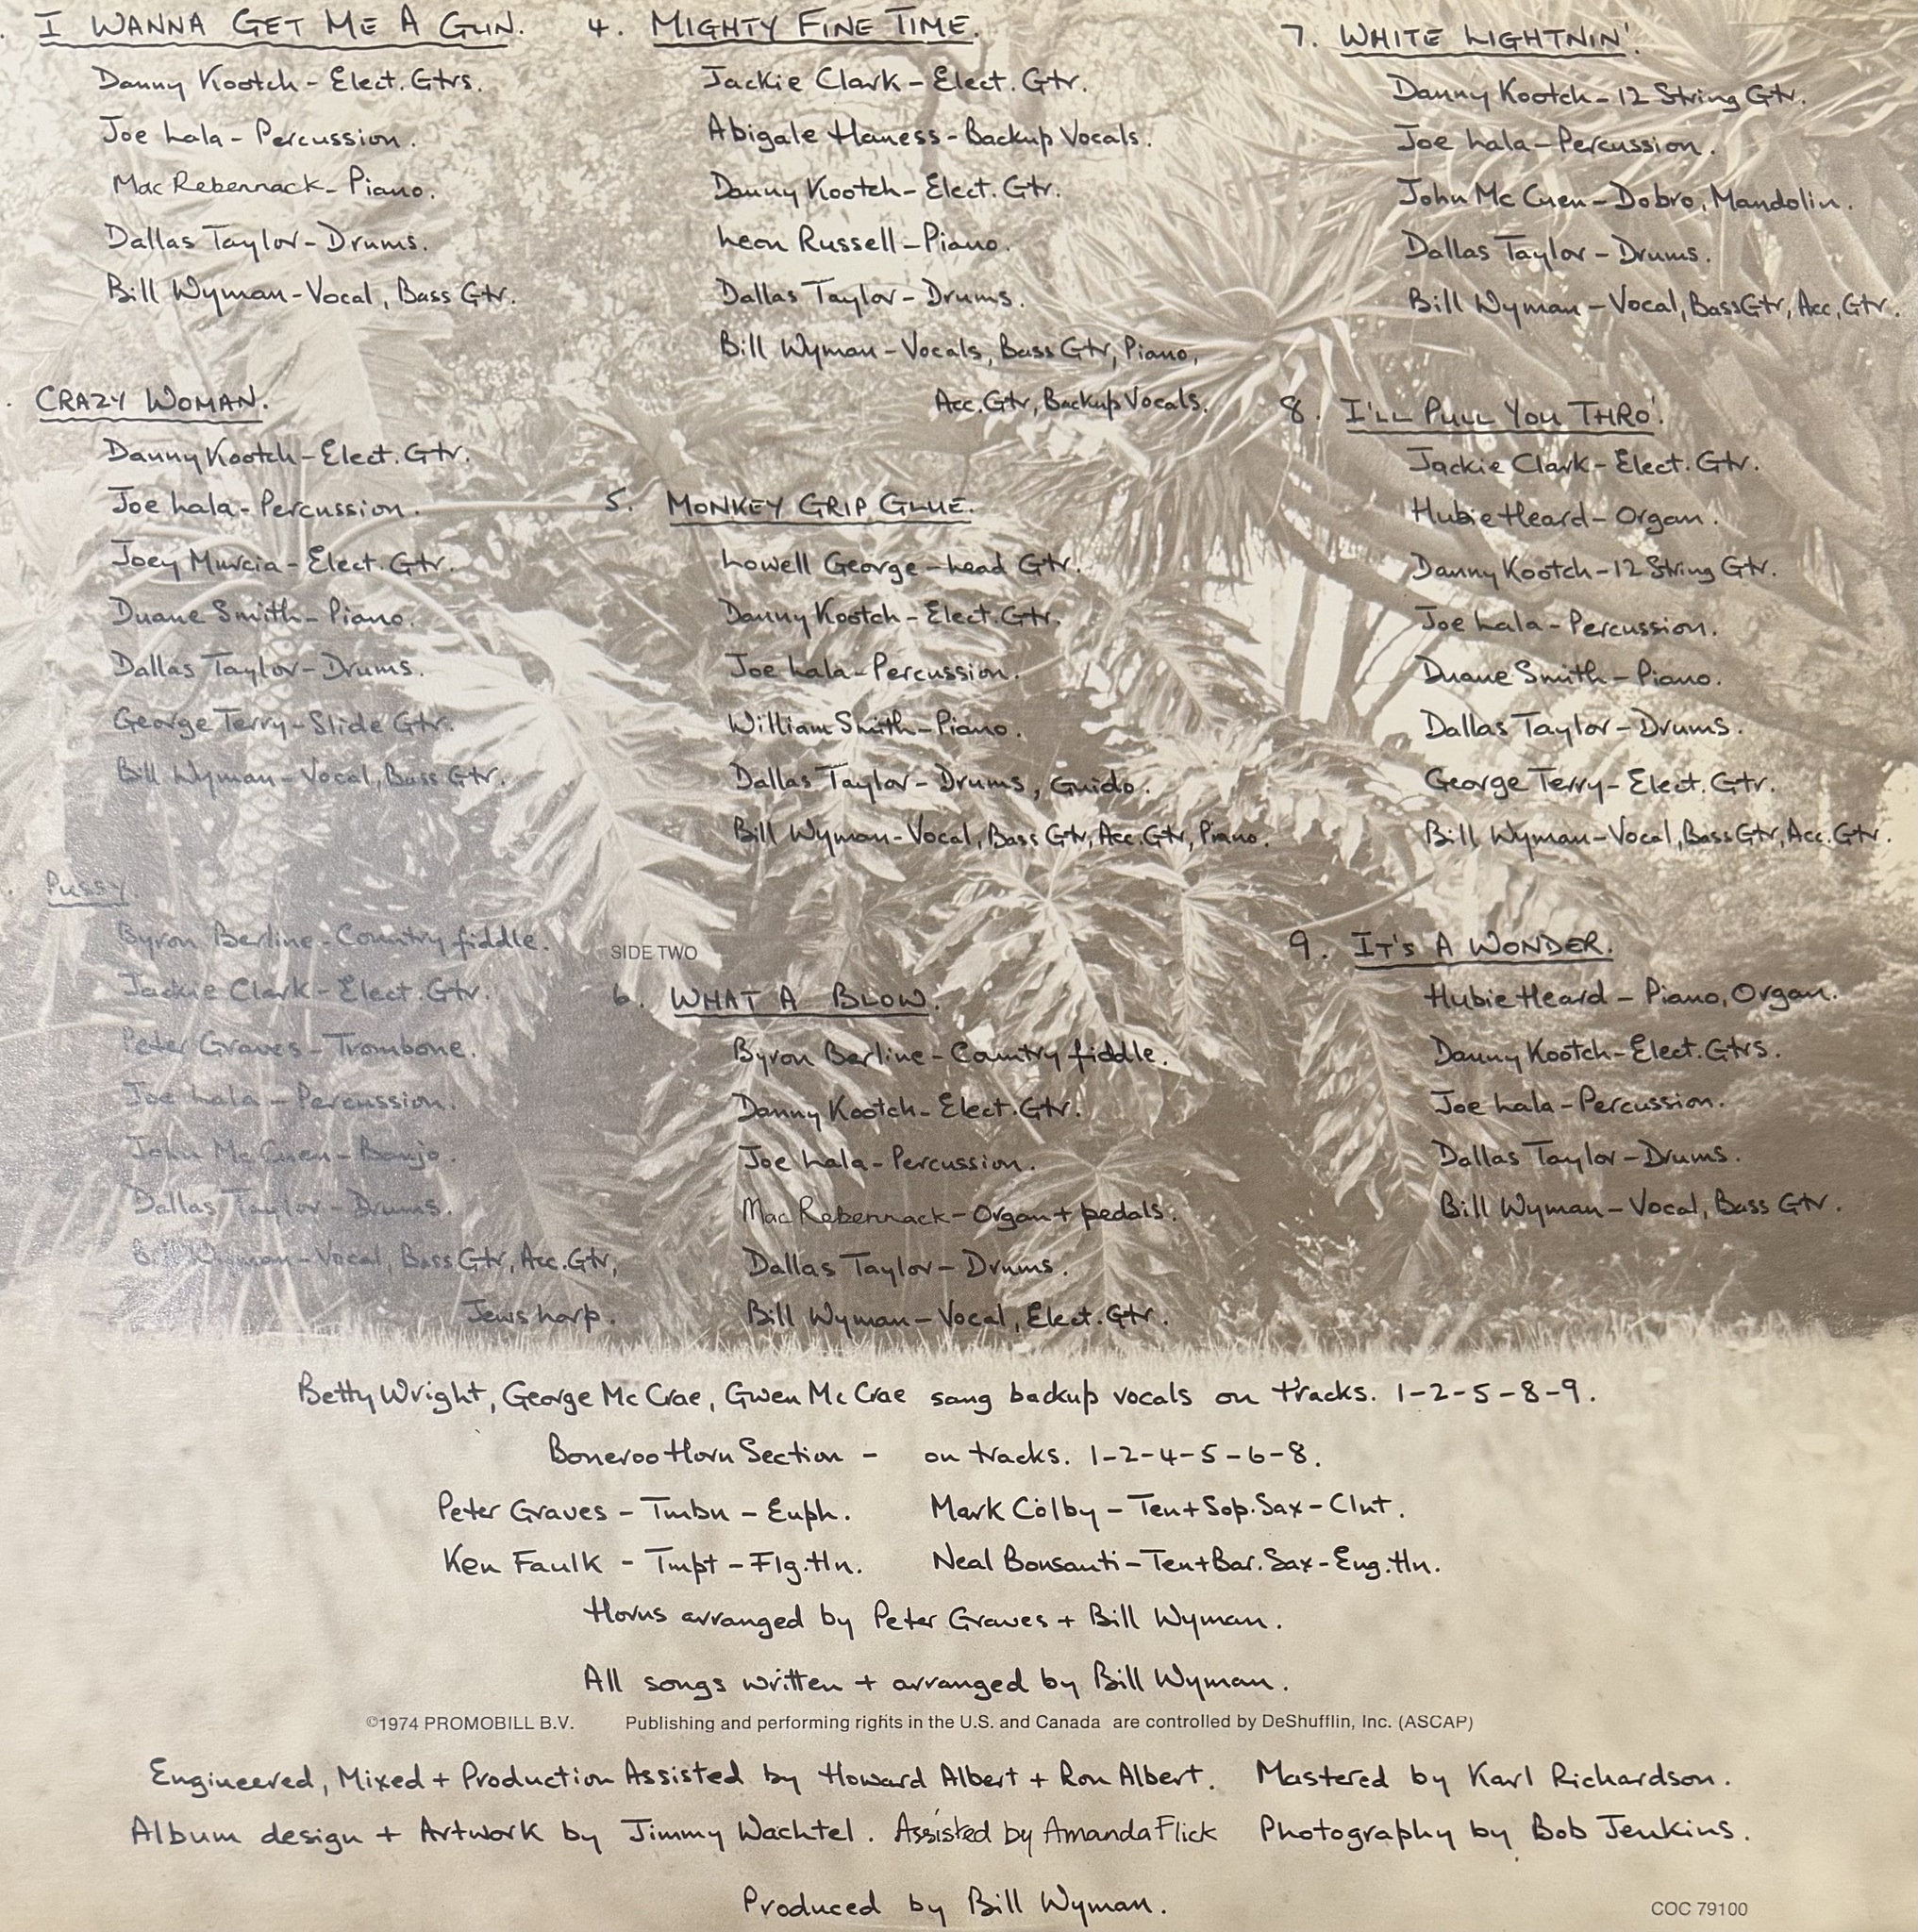 . I WANNA GET ME A GUN.
Danny Kootch - Elect. Gtrs.
Joe Lala - Percussion.
Mac Rebennack - Piano.
Dallas Taylor - Drums.
Bill Wyman - Vocal, Bass Gtr.
. CRAZY WOMAN.
Danny Kootch - Elect. Gtr.
Joe Lala - Percussion.
Joey Murcia - Elect. Gtr.
Duane Smith - Piano.
Dallas Taylor - Drums.
George Terry - Slide Gtr.
Bill Wyman - Vocal, Bass Gtr.
. PUSSY.
Byron Berline - Country fiddle.
Jackie Clark - Elect. Gtr.
Peter Graves - Trombone.
Joe Lala - Percussion.
John McCuen - Banjo.
Dallas Taylor - Drums.
Bill Wyman - Vocal, Bass Gtr, Acc. Gtr,
Jews harp.
4. MIGHTY FINE TIME.
Jackie Clark - Elect. Gtr.
Abigale Haness - Backup Vocals.
Danny Kootch - Elect. Gtr.
Leon Russell - Piano.
Dallas Taylor - Drums.
Bill Wyman - Vocals, Bass Gtr, Piano,
Acc. Gtr, Backup Vocals.
5. MONKEY GRIP GLUE.
Lowell George - Lead Gtr.
Danny Kootch - Elect. Gtr.
Joe Lala - Percussion.
William Smith - Piano.
Dallas Taylor - Drums, Guido.
Bill Wyman - Vocal, Bass Gtr, Acc. Gtr, Piano.
SIDE TWO
6. WHAT A BLOW.
Byron Berline - Country fiddle.
Danny Kootch - Elect. Gtr.
Joe Lala - Percussion.
Mac Rebennack - Organ + pedals.
Dallas Taylor - Drums.
Bill Wyman - Vocal, Elect. Gtr.
7. WHITE LIGHTNIN'.
Danny Kootch - 12 String Gtr.
Joe Lala - Percussion.
John McCuen - Dobro, Mandolin.
Dallas Taylor - Drums.
Bill Wyman - Vocal, Bass Gtr, Acc. Gtr.
8. I'LL PULL YOU THRO'.
Jackie Clark - Elect. Gtr.
Hubie Heard - Organ.
Danny Kootch - 12 String Gtr.
Joe Lala - Percussion.
Duane Smith - Piano.
Dallas Taylor - Drums.
George Terry - Elect. Gtr.
Bill Wyman - Vocal, Bass Gtr, Acc. Gtr.
9. IT'S A WONDER.
Hubie Heard - Piano, Organ.
Danny Kootch - Elect. Gtrs.
Joe Lala - Percussion.
Dallas Taylor - Drums.
Bill Wyman - Vocal, Bass Gtr.
Betty Wright, George McCrae, Gwen McCrae sang backup vocals on tracks. 1-2-5-8-9.
Boneroo Horn Section - on tracks. 1-2-4-5-6-8.
Peter Graves - Tmbn - Euph. Mark Colby - Ten + Sop. Sax - Clnt.
Ken Faulk - Tmpt - Flg. Hn. Neal Bonsanti - Ten + Bar. Sax - Eng. Hn.
Horns arranged by Peter Graves + Bill Wyman.
All songs written + arranged by Bill Wyman.
©1974 PROMOBILL B.V. Publishing and performing rights in the U.S. and Canada are controlled by DeShufflin, Inc. (ASCAP)
Engineered, Mixed + Production Assisted by Howard Albert + Ron Albert. Mastered by Karl Richardson.
Album design + Artwork by Jimmy Wachtel. Assisted by Amanda Flick Photography by Bob Jenkins.
Produced by Bill Wyman.
COC 79100